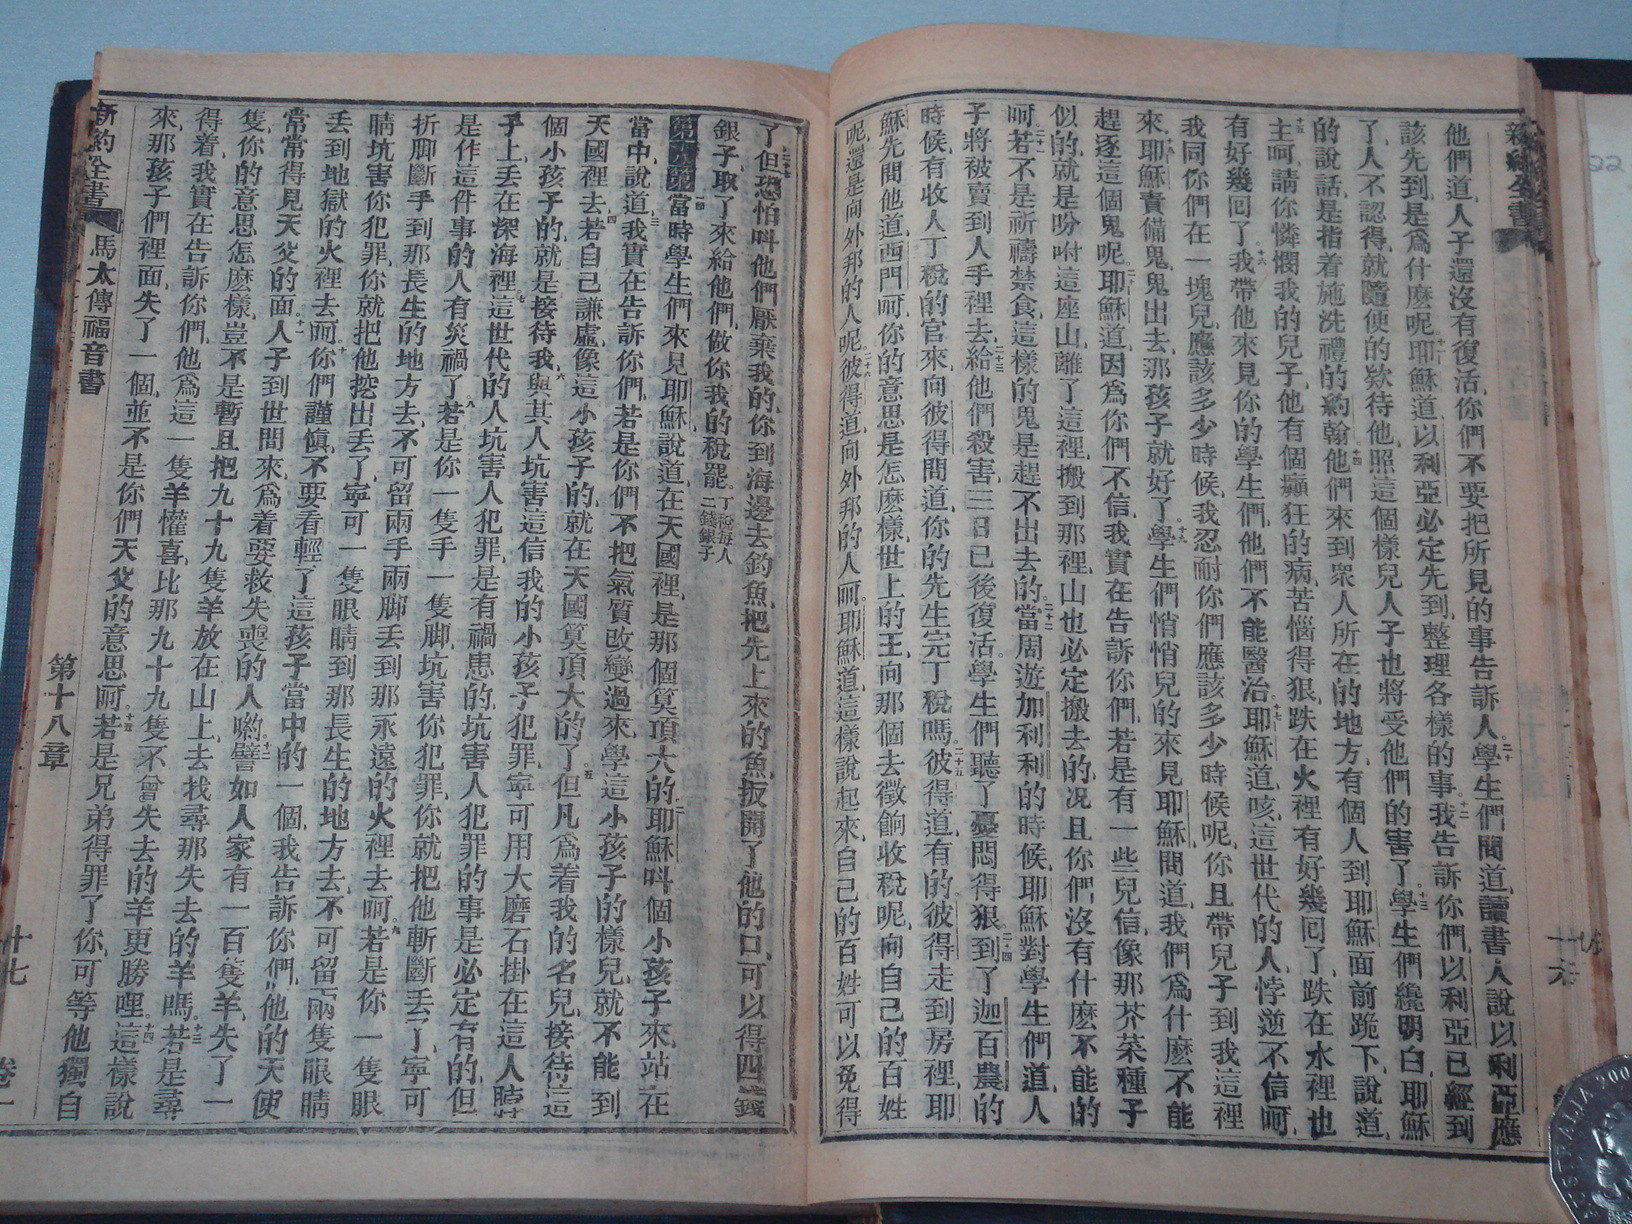 他們道人子還沒有復活你們不要把所見的事告訴人二十學生們問道讀書人說以利亞應
該先到是爲什麽呢十一耶穌道以利亞必定先到整理各樣的事十二我告訴你們以利亞已經到
了人不認得就隨便的欵待他照這個樣兒人子也將受他們的害了十三學生們纔明白耶穌
的說話是指着施洗禮的約翰十四他們來到衆人所在的地方有個人到耶穌面前跪下說道
十五主呵請你憐憫我的兒子他有個癲狂的病苦惱得狠跌在火裡有好幾回了跌在水裡也
有好幾回了十六我帶他來見你的學生們他們不能醫治十七耶穌道咳這世代的人悖逆不信呵
我同你們在一塊兒應該多少時候我忍耐你們應該多少時候呢你且帶兒子到我這裡
來耶穌責備鬼鬼出去那孩子就好了十九學生們悄悄兒的來見耶穌問道我們爲什麽不能
趕逐這個鬼呢二十耶穌道因爲你們不信我實在告訴你們若是有一些兒信像那芥菜種子
似的就是吩咐這座山離了這裡搬到那裡山也必定搬去的况且你們沒有什麽不能的
呵二十一若不是祈禱禁食這樣的鬼是趕不出去的二十二當周遊加利利的時候耶穌對學生們道人
子將被賣到人手裡去二十三給他們殺害三日已後復活學生們聽了憂悶得狠二十四到了迦百農的
時候有收人丁稅的官來向彼得問道你的先生完丁稅嗎二十五彼得道有的彼得走到房裡耶
穌先問他道西門呵你的意思是怎麽樣世上的王向那個去徵餉收稅呢向自己的百姓
呢還是向外邦的人呢二十六彼得道向外邦的人呵耶穌道這樣說起來自己的百姓可以免得
了但恐怕呌他們厭棄我的你到海邊去釣魚把先上來的魚扳開了他的口可以得四錢
銀子取了來給他們做你我的稅罷丁稅每人二錢銀子
當時學生們來見耶穌說道在天國裡是那個算頂大的二耶穌呌個小孩子來站在
當中三說道我實在告訴你們若是你們不把氣質改變過來學這小孩子的樣兒就不能到
天國裡去四若自己謙虛像這小孩子的就在天國算頂大的了五但凡爲着我的名兒接待這
個小孩子的就是接待我六與其人坑害這信我的小孩子犯罪寧可用大磨石掛在這人脖
子上丢在深海裡七這世代的人坑害人犯罪是有禍患的坑害人犯罪的事是必定有的但
是作這件事的人有災禍了八若是你一隻手一隻脚坑害你犯罪你就把他斬斷丢了寧可
折脚斷手到那長生的地方去不可留兩手兩脚丢到那永遠的火裡去呵九若是你一隻眼
睛坑害你犯罪你就把他挖出丢了寧可一隻眼睛到那長生的地方去不可留兩隻眼睛
丢到地獄的火裡去呵十你們謹愼不要看輕了這孩子當中的一個我告訴你們他的天使
常常得見天父的面十一人子到世間來爲着要救失喪的人喲十二譬如人家有一百隻羊失了一
隻你的意思怎麽樣豈不是暫且把九十九隻羊放在山上去找尋那失去的羊嗎十三若是尋
得着我實在告訴你們他爲這一隻羊懽喜比那九十九隻不曾失去的羊更勝哩十四這樣說
來那孩子們裡面失了一個並不是你們天父的意思呵十五若是兄弟得罪了你可等他獨自
新約全書 馬太傳福音書 第十八章 十七 卷一